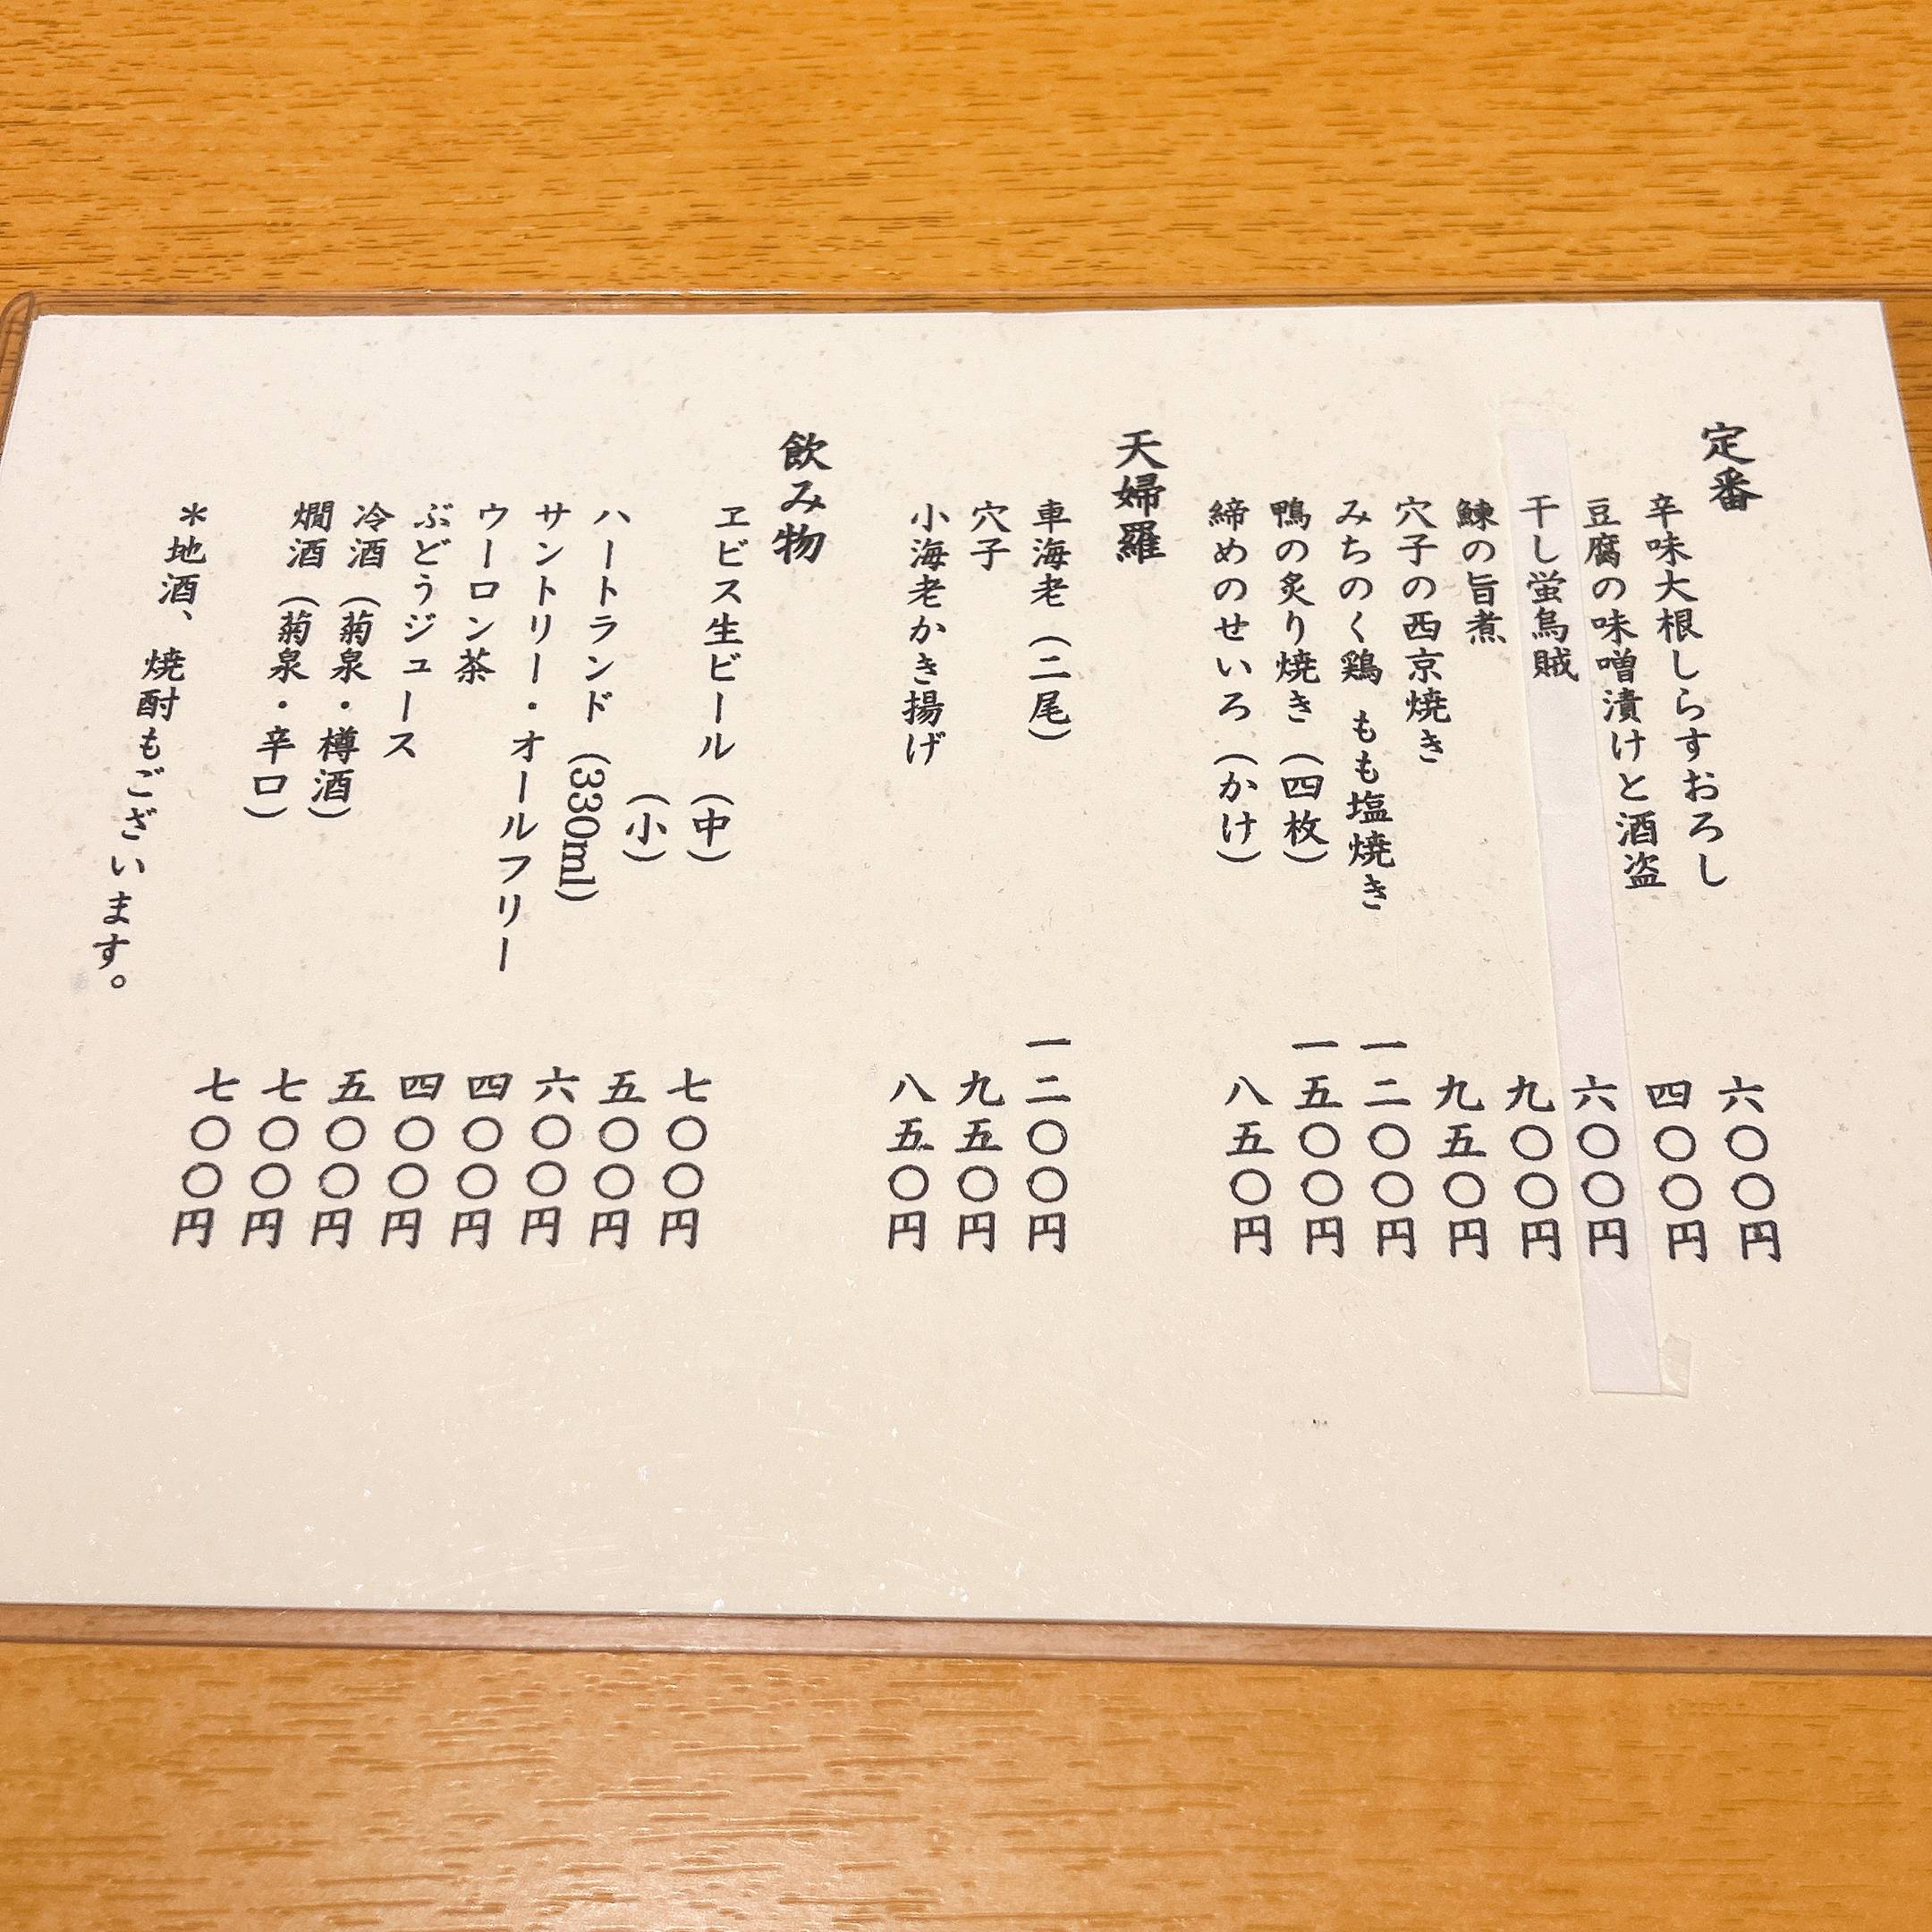 定番
辛味大根しらすおろし 六〇〇円
豆腐の味噌漬けと酒盗 四〇〇円
干し蛍烏賊 六〇〇円
鰊の旨煮 九〇〇円
穴子の西京焼き 九五〇円
みちのく鶏 もも塩焼き 一二〇〇円
鴨の炙り焼き（四枚） 一五〇〇円
締めのせいろ（かけ） 八五〇円
天婦羅
車海老（二尾） 一二〇〇円
穴子 九五〇円
小海老かき揚げ 八五〇円
飲み物
ヱビス生ビール（中） 七〇〇円
（小） 五〇〇円
ハートランド（330ml） 六〇〇円
サントリー・オールフリー 四〇〇円
ウーロン茶 四〇〇円
ぶどうジュース 五〇〇円
冷酒（菊泉・樽酒） 七〇〇円
燗酒（菊泉・辛口） 七〇〇円
＊地酒、焼酎もございます。